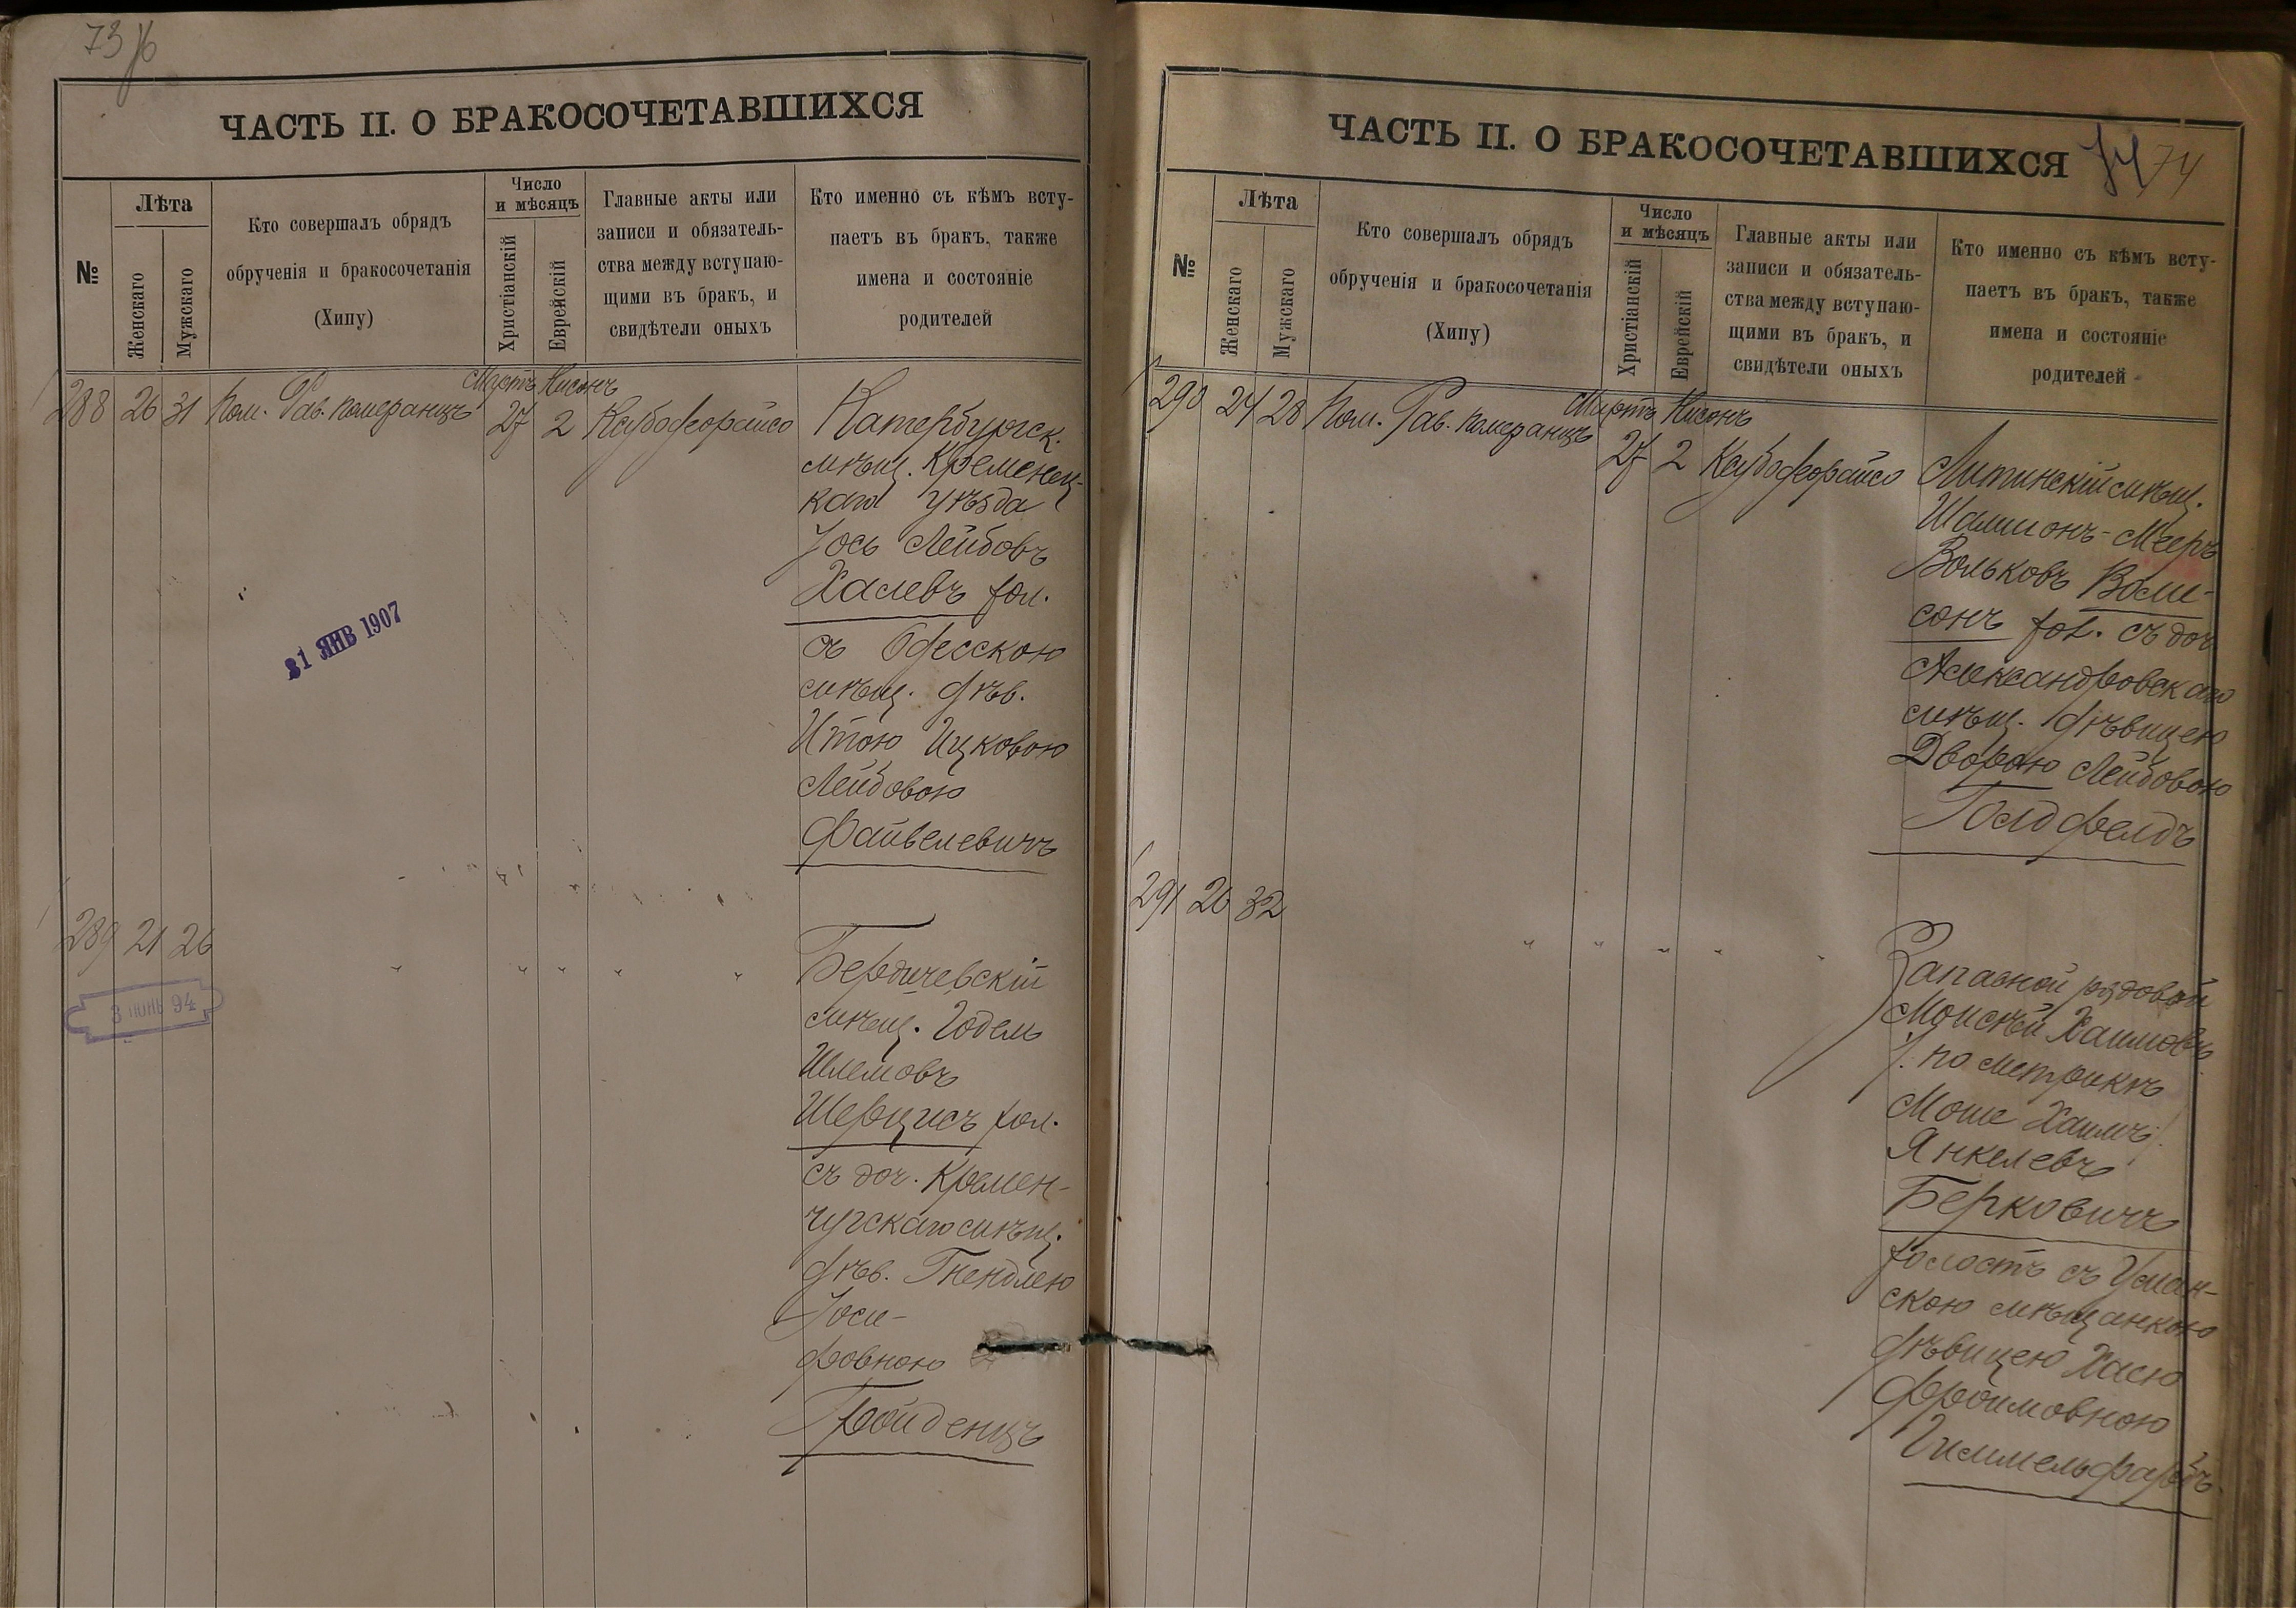 73 об
ЧАСТЬ II. О БРАКОСОЧЕТАВШИХСЯ
№
Лѣта
Женскаго
Мужскаго
Кто совершалъ обрядъ
обрученія и бракосочетанія
(Хипу)
Число
и мѣсяцъ
Христіанскій
Еврейскій
Главные акты или
записи и обязатель-
ства между вступаю-
щими въ бракъ, и
свидѣтели оныхъ
Кто именно съ кѣмъ всту-
паетъ въ бракъ, также
имена и состояніе
родителей
Мартъ Нисонъ
288 26 31 Пом. Рав. Померанцъ 27 2 Ксубофеорайсо
Катербургск.
мѣщ. Кременец-
каго уѣзда
Іось Лейбовъ
Халевъ хол.
съ Одесскою
мѣщ. дѣв.
Итою Ицковою
Лейбовою
Файвелевичъ
31 ЯНВ 1907
289 21 26 " " " " "
3 94
Бердичевскій
мѣщ. Годель
Шлемовъ
Шерцисъ хол.
съ доч. Кремен-
чугскаго мѣщ.
дѣв. Гнендлею
Іоси-
фовною
Гройденцъ
ЧАСТЬ II. О БРАКОСОЧЕТАВШИХСЯ
74 74
№
Лѣта
Женскаго
Мужскаго
Кто совершалъ обрядъ
обрученія и бракосочетанія
(Хипу)
Число
и мѣсяцъ
Христіанскій
Еврейскій
Главные акты или
записи и обязатель-
ства между вступаю-
щими въ бракъ, и
свидѣтели оныхъ
Кто именно съ кѣмъ всту-
паетъ въ бракъ, также
имена и состояніе
родителей
Мартъ Нисонъ
290 24 28 Пом. Рав. Померанцъ 27 2 Ксубофеорайсо
Литинскій мѣщ.
Шамшонъ-Мееръ
Вольковъ Воли-
сонъ хол. съ доч
Александровскаго
мѣщ. дѣвицею
Дворою Лейбовою
Голдфелдъ
291 26 32 " " " " "
Запасной рядовой
Моисѣй Хаимовъ
/: по метрикѣ
Моше Хаимъ :/
Янкелевъ
Берковичъ
холостъ съ Уман-
скою мѣщанкою
дѣвицею Хасею
Фроимовною
Гиммельфарбъ